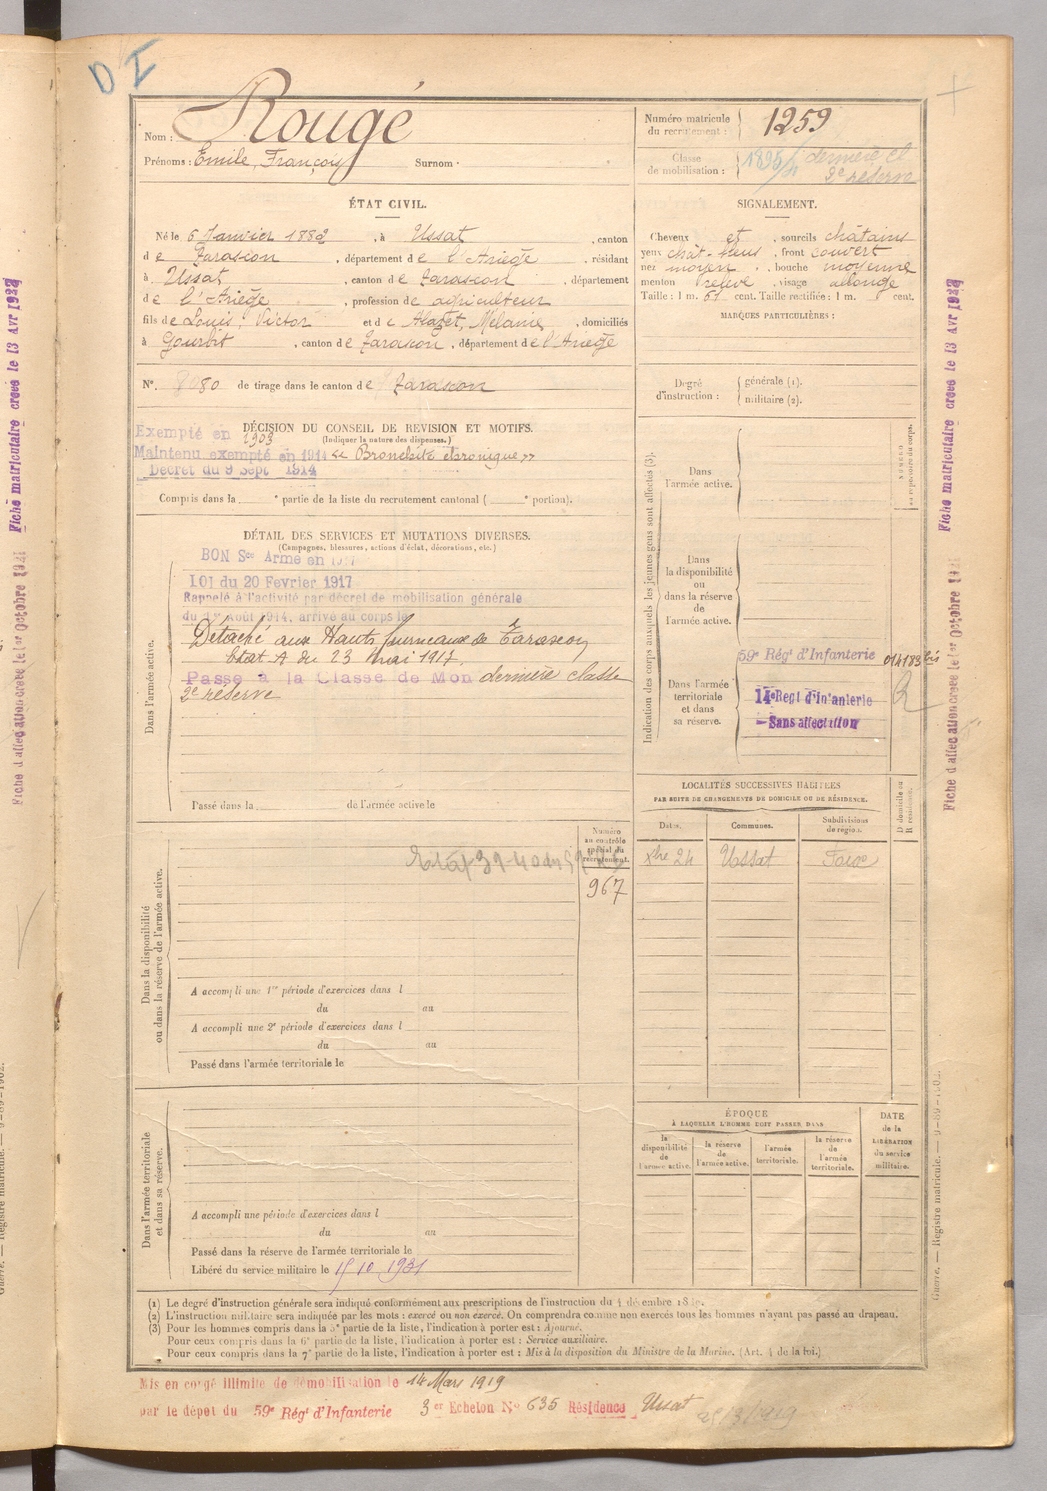 D I
Nom : Rougé
Prénoms : Emile, François Surnom ·
Numéro matricule
du recrutement : 1259
Classe
de mobilisation : 1895 dernière cl
2e réserve
ÉTAT CIVIL.
Né le 6 Janvier 1882, à Ussat, canton
de Tarascon, département de l'Ariège, résidant
à Ussat, canton de Tarascon, département
de l'Ariège, profession de agriculteur
fils de Louis, Victor et de Alazet, Mélanie, domiciliés
à Gourbit, canton de Tarascon, département de l'Ariège
SIGNALEMENT.
Cheveux et, sourcils châtains
yeux chât-, front couvert
nez moyen, bouche moyenne
menton relevé, visage allongé
Taille : 1 m. 61 cent. Taille rectifiée : 1 m. cent.
MARQUES PARTICULIÈRES :
N°. 80 de tirage dans le canton de Tarascon
Degré
d'instruction : générale (1).
militaire (2).
DÉCISION DU CONSEIL DE REVISION ET MOTIFS.
(Indiquer la nature des dispenses.)
Exempté en 1903
Maintenu exempté en 1914 « Bronchite chronique »
Décret du 9 Sept 1914
Compris dans la e partie de la liste du recrutement cantonal ( e portion).
DÉTAIL DES SERVICES ET MUTATIONS DIVERSES.
(Campagnes, blessures, actions d'éclat, décorations, etc.)
Dans l'armée active.
BON Sce Armé en
LOI du 20 Fevrier 1917
Rappelé à l'activité par décret de mobilisation générale
du 1er août 1914, arrivé au corps le
Détaché aux Hauts fourneaux de Tarascon
Etat A du 23 Mai 1917.
Passé à la Classe de Mon dernière classe
2e réserve
Passé dans la de l'armée active le
Indication des corps auxquels les jeunes gens sont affectés (3).
NUMÉRO
au répertoire du corps.
Dans
l'armée active.
Dans
la disponibilité
ou
dans la réserve
de
l'armée active.
Dans l'armée
territoriale
et dans
sa réserve.
59e Régt d'Infanterie 014183 bis
14e Regt d'Infanterie
Sans affectation
R
LOCALITÉS SUCCESSIVES HABITÉES
PAR SUITE DE CHANGEMENTS DE DOMICILE OU DE RÉSIDENCE.
Dates. Communes. Subdivisions
de région.
D domicile ou
R résidence.
Xbre 24 Ussat Foix
Dans la disponibilité
ou dans la réserve de l'armée active.
Numéro
au contrôle
spécial du
recrutement.
967
A accompli une 1re période d'exercices dans l
du au
A accompli une 2e période d'exercices dans l
du au
Passé dans l'armée territoriale le
Dans l'armée territoriale
et dans sa réserve.
A accompli une période d'exercices dans l
du au
Passé dans la réserve de l'armée territoriale le
Libéré du service militaire le 15 10 1931
ÉPOQUE
À LAQUELLE L'HOMME DOIT PASSER DANS
la
disponibilité
de
l'armée active.
la réserve
de
l'armée active.
l'armée
territoriale.
la réserve
de
l'armée
territoriale.
DATE
de la
LIBÉRATION
du service
militaire.
(1) Le degré d'instruction générale sera indiqué conformément aux prescriptions de l'instruction du 4 décembre
(2) L'instruction militaire sera indiquée par les mots : exercé ou non exercé. On comprendra comme non exercés tous les hommes n'ayant pas passé au drapeau.
(3) Pour les hommes compris dans la 5e partie de la liste, l'indication à porter est : Ajourné.
Pour ceux compris dans la 6e partie de la liste, l'indication à porter est : Service auxiliaire.
Pour ceux compris dans la 7e partie de la liste, l'indication à porter est : Mis à la disposition du Ministre de la Marine. (Art. 4 de la loi.)
Mis en congé illimité de démobilisation le 14 Mars 1919
par le dépot du 59e Rég' d'Infanterie 3er Echelon N° 635 Résidence Ussat
Fiche matriculaire créée le 13 Avr
Fiche d'affectation créée le 1er Octobre
Fiche matriculaire créée le 13 Avr
Fiche d'affectation créée le 1er Octobre
Guerre. — Registre matricule. — 9-89-1902.
Guerre. — Registre matricule. — 9-89-